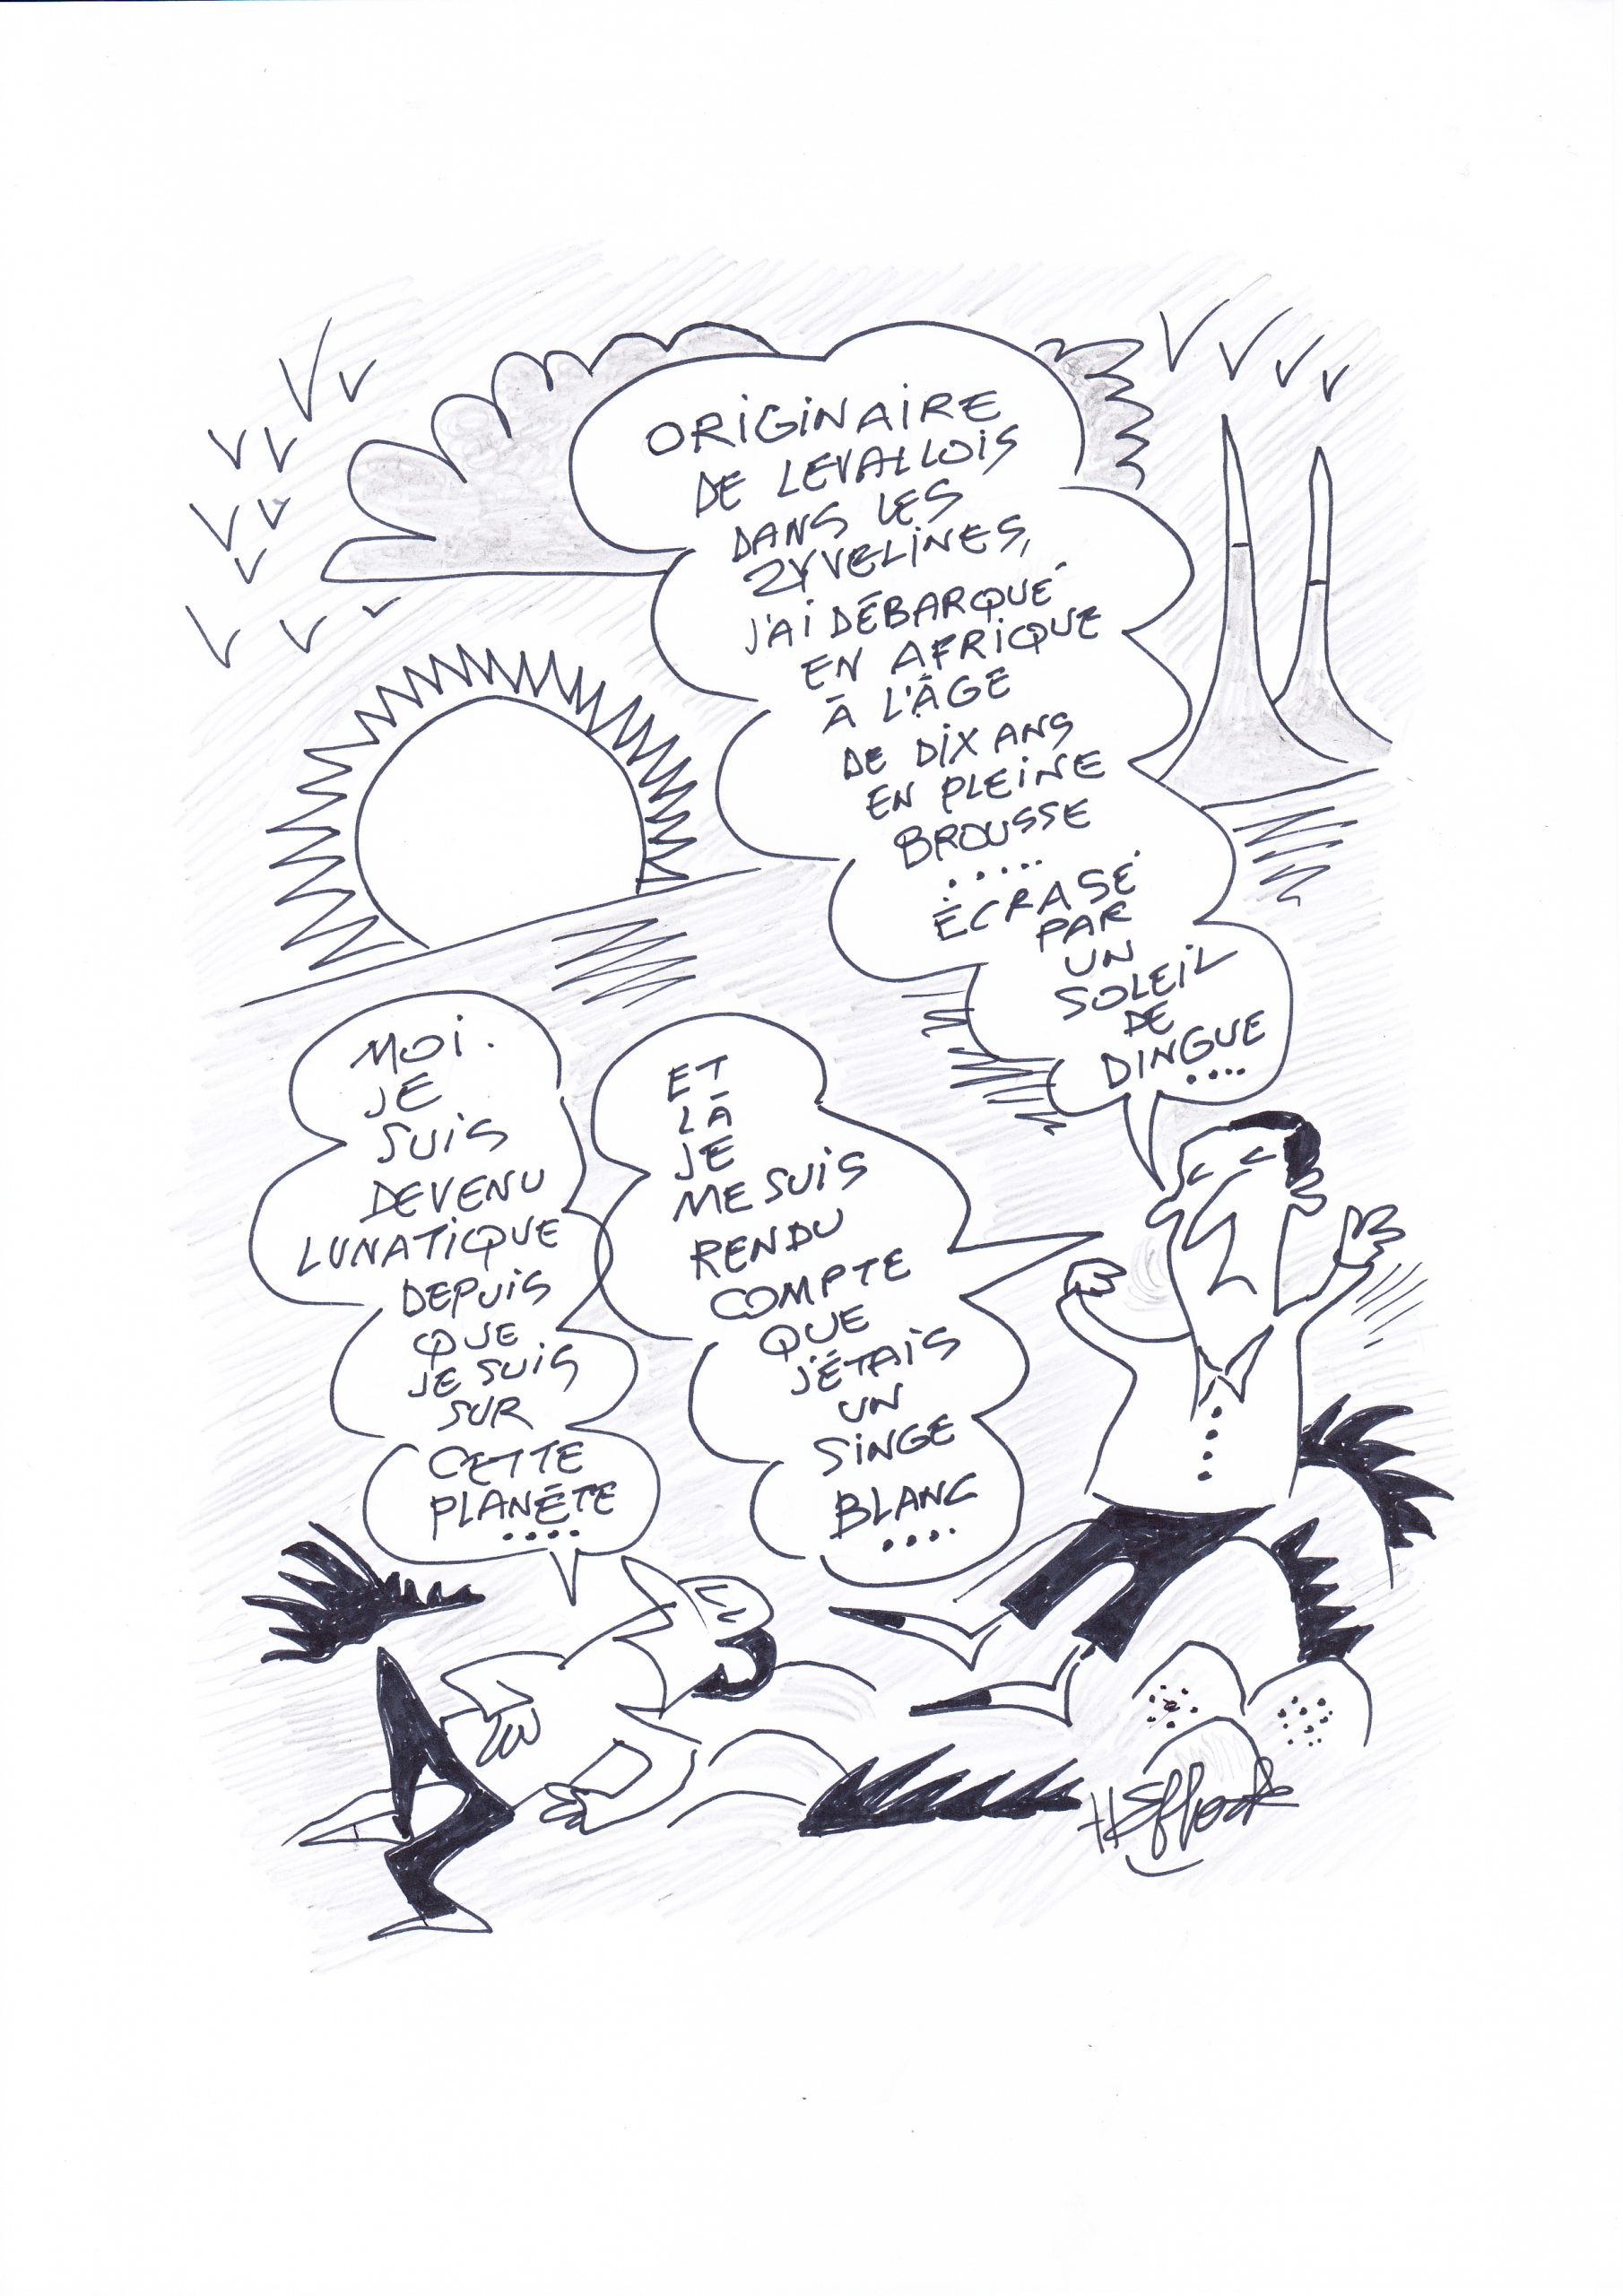 ORIGINAIRE
DE LEVALLOIS
DANS LES
ZYVELINES,
J'AI DÉBARQUÉ
EN AFRIQUE
À L'ÂGE
DE DIX ANS
EN PLEINE
BROUSSE
.....
ÉCRASÉ
PAR
UN
SOLEIL
DE
DINGUE
....
ET
LÀ
JE
ME SUIS
RENDU
COMPTE
QUE
J'ÉTAIS
UN
SINGE
BLANC
....
MOI.
JE
SUIS
DEVENU
LUNATIQUE
DEPUIS
QUE
JE SUIS
SUR
CETTE
PLANÈTE
....